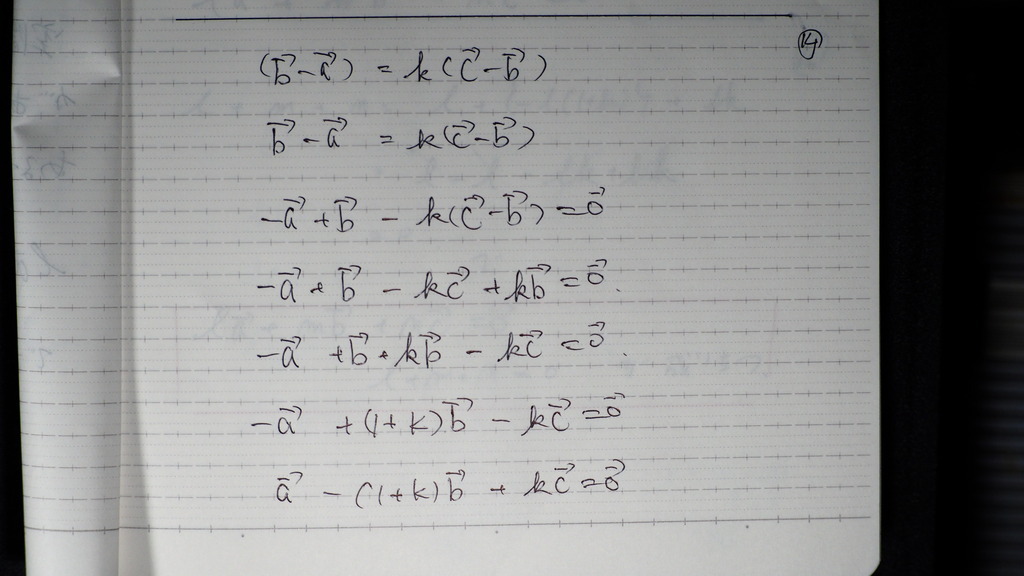 ⑭
(b⃗ - a⃗) = k(c⃗ - b⃗)
b⃗ - a⃗ = k(c⃗ - b⃗)
-a⃗ + b⃗ - k(c⃗ - b⃗) = 0⃗
-a⃗ + b⃗ - kc⃗ + kb⃗ = 0⃗.
-a⃗ + b⃗ + kb⃗ - kc⃗ = 0⃗.
-a⃗ + (1+k)b⃗ - kc⃗ = 0⃗
a⃗ - (1+k)b⃗ + kc⃗ = 0⃗